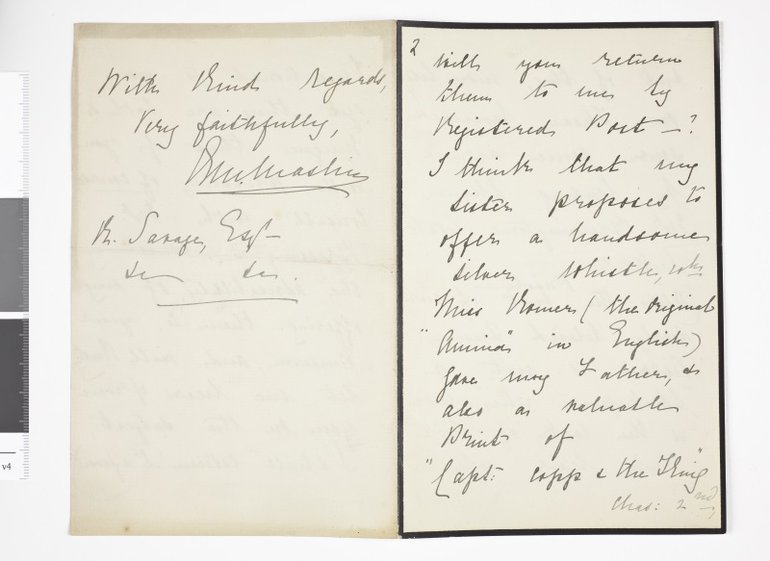 2
will you return
them to me by
Registered Post —?
I think that my
sister proposes to
offer a handsome
silver whistle, wh:
Miss Romer (the original
"Amina" in English)
gave my Father, &
also a valuable
Print of
"Capt: Copp & the King"
Chas: 2nd,
With kind regards,
Very faithfully,
R. Savage, Esqr
v4